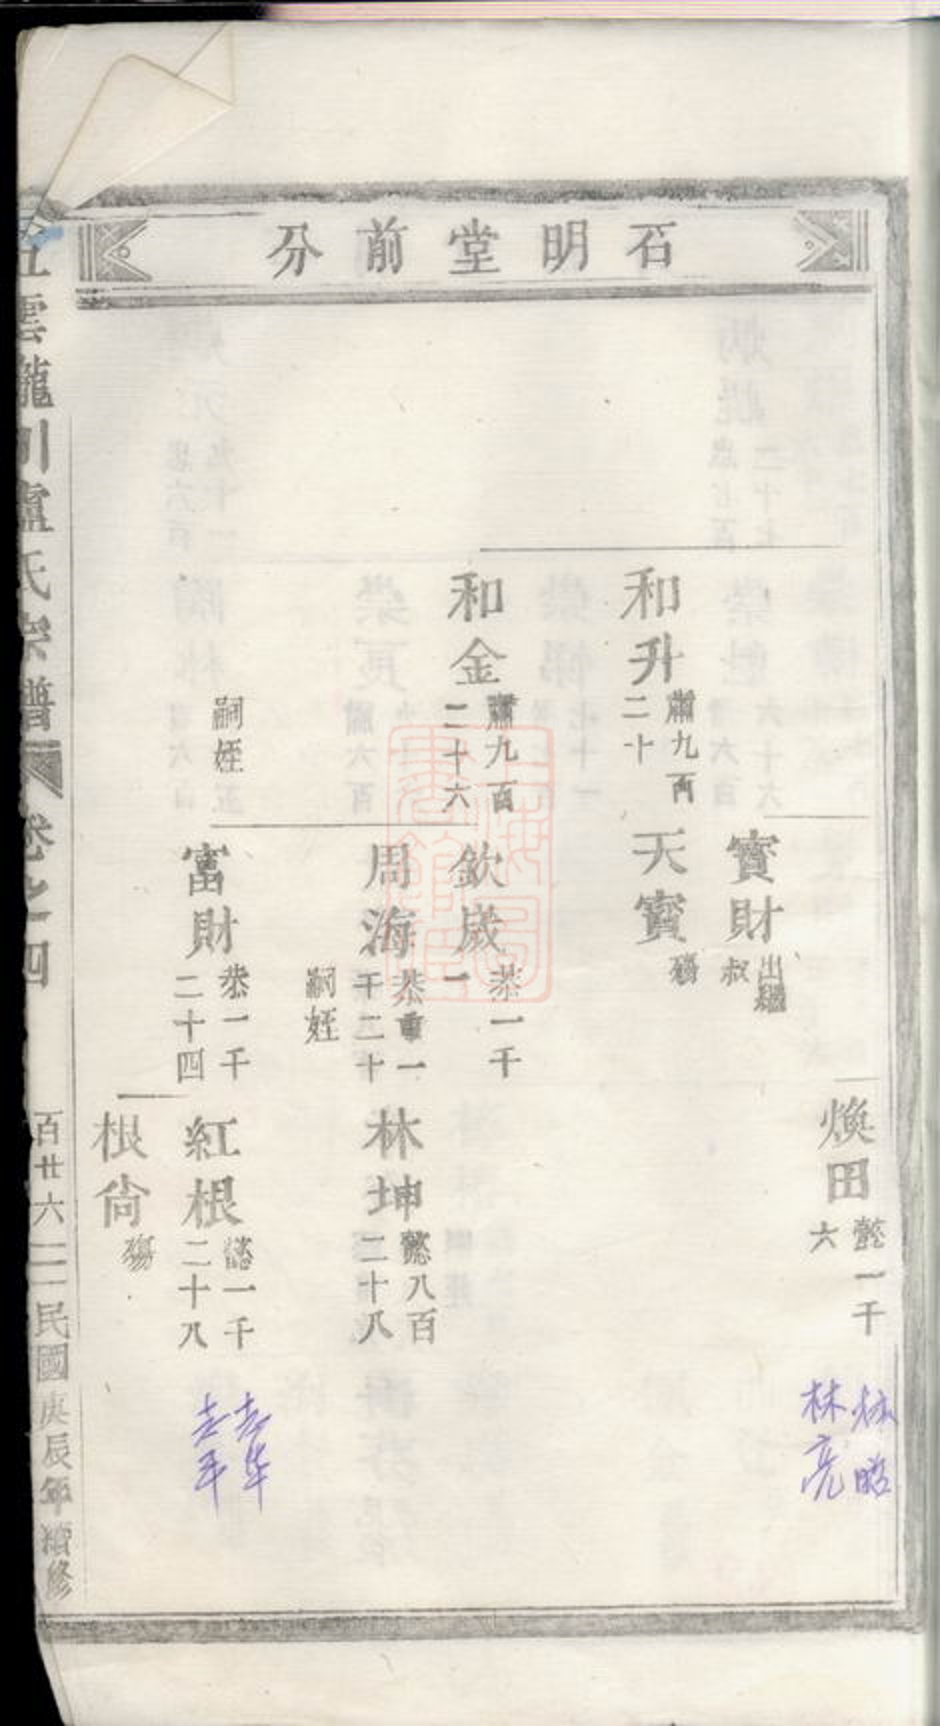 石明堂前分
和升
肅九百
二十
和金
肅九百
二十六
嗣姪
寶財
出繼
叔
天寶
殤
欽歲
恭一千
一
周海
恭重一
千二十
嗣姪
富財
恭一千
二十四
煥田
懿一千
六
林坤
懿八百
二十八
紅根
懿一千
二十八
根尙
殤
林
林亮
五雲龍川盧氏宗譜
卷之四
百廿六
民國庚辰年續修